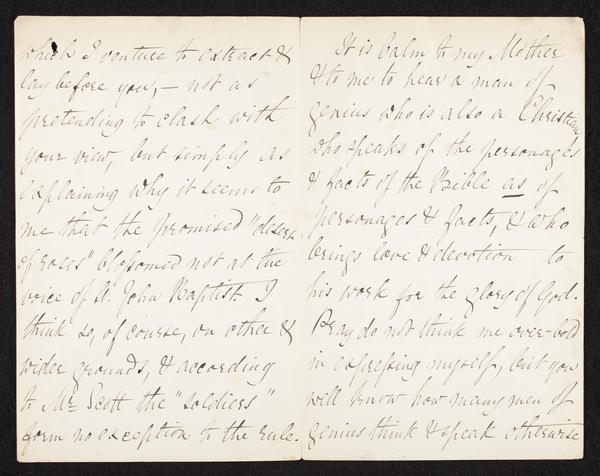 which I venture to extract &
lay before you, – not as
pretending to clash with
your view, but simply as
explaining why it seems to
me that the promised "desert
of roses" blossomed not at the
voice of St. John Baptist. I
think so, of course, on other &
wider grounds, & according
to Mr. Scott the "soldiers"
form no exception to the rule.
It is balm to my Mother
& to me to hear a man of
genius who is also a Christian,
who speaks of the personages
& facts of the Bible as of
personages & facts, & who
brings love & devotion to
his work for the glory of God.
Pray do not think me over-bold
in expressing myself, but you
will know how many men of
genius think & speak otherwise